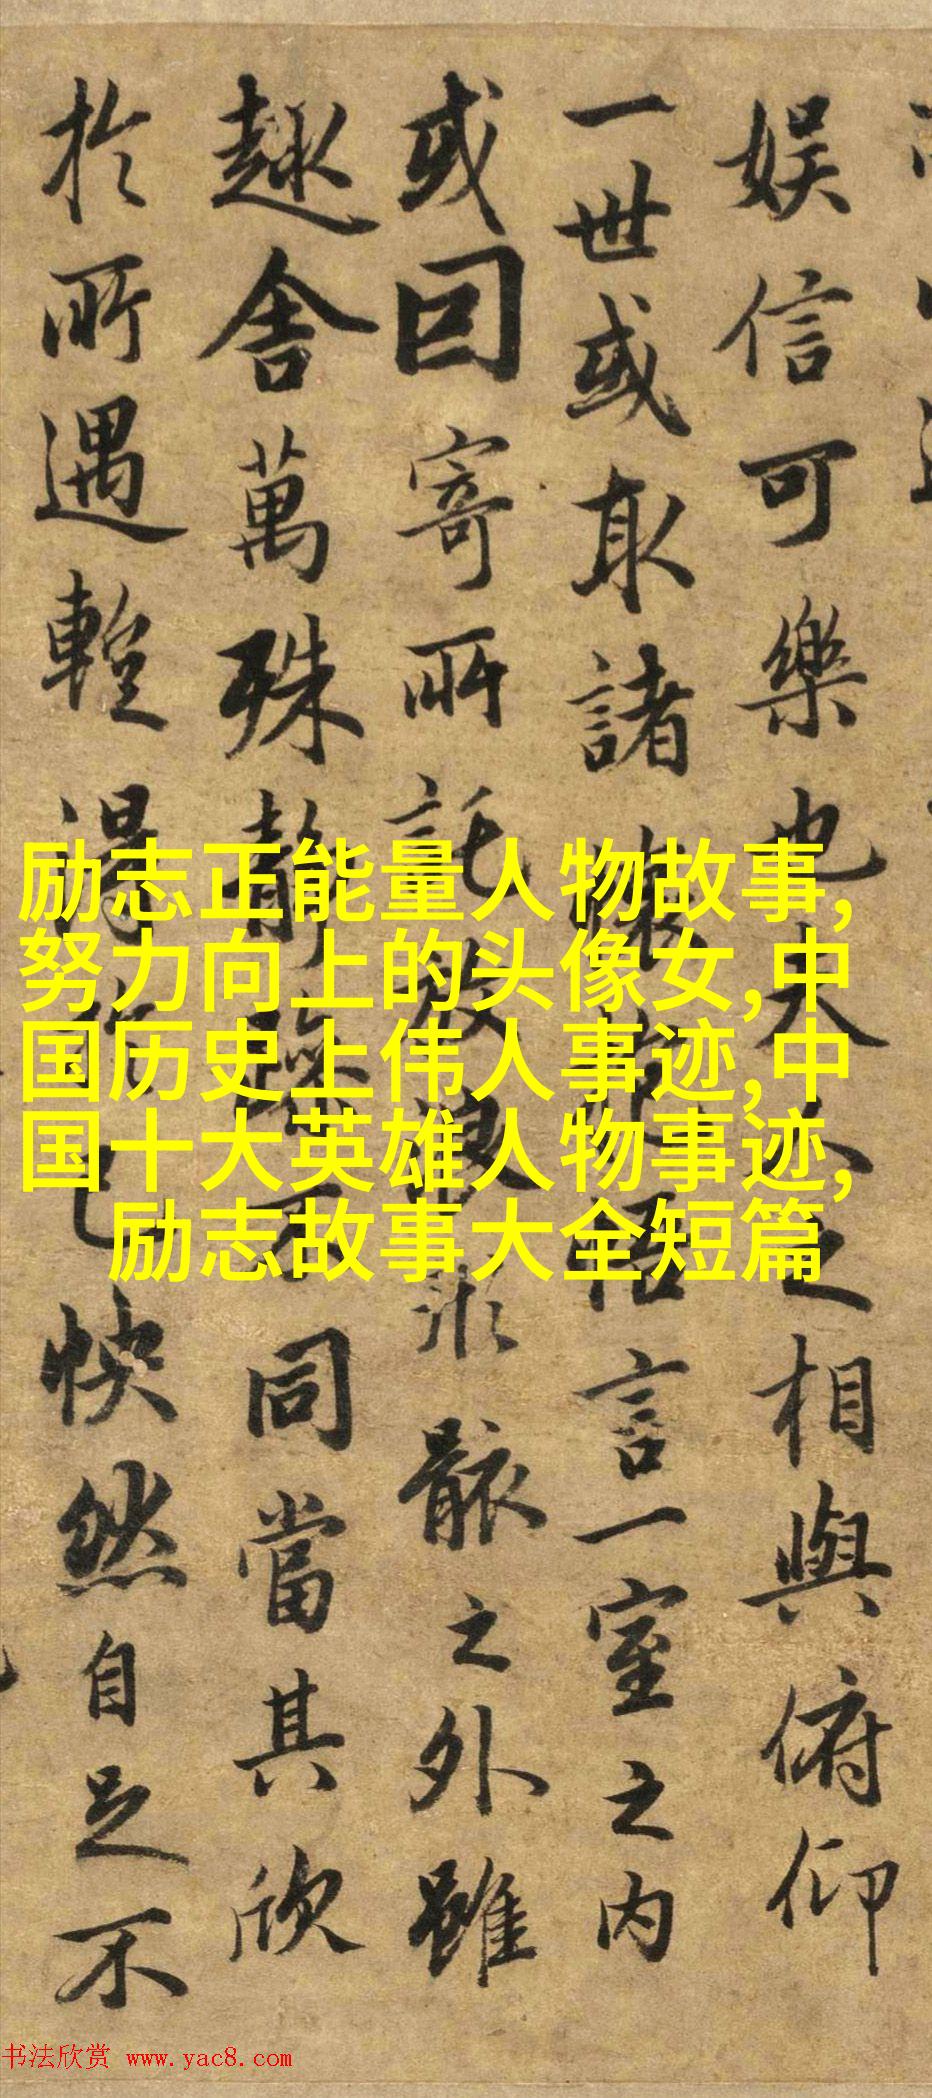 娱信可樂也夫人之相與俯仰
一世或取諸懷抱悟言一室之内
或因寄所託放浪形骸之外雖
趣舍萬殊静躁不同當其欣
於所遇暫得於己快然自足不
励志正能量人物故事,
努力向上的头像女,中
国历史上伟人事迹,中
国十大英雄人物事迹,
励志故事大全短篇
书法欣赏 www.yac8.com